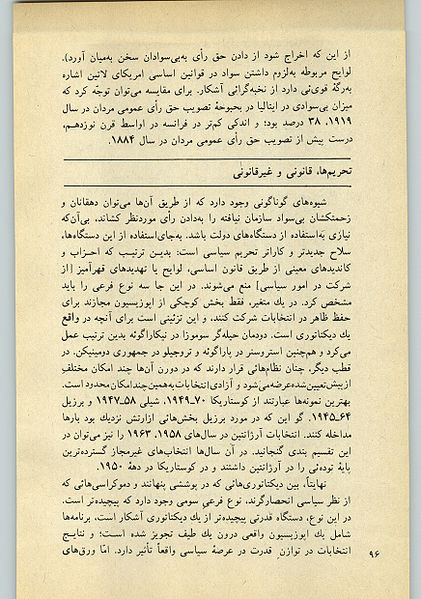 از این که اخراج شود از دادن حق رأی به‌بی‌سوادان سخن به‌میان آورد).
لوایح مربوطه به‌لزوم داشتن سواد در قوانین اساسی امریکای لاتین اشاره
به‌رگهٔ قوی‌ئی دارد از نخبه‌گرائی آشکار. برای مقایسه می‌توان توجه کرد که
میزان بی‌سوادی در ایتالیا در بحبوحهٔ تصویب حق رأی عمومی مردان در سال
۱۹۱۹، ۳۸ درصد بود؛ و اندکی کم‌تر در فرانسه در اواسط قرن نوزدهم،
درست پیش از تصویب حق رأی عمومی مردان در سال ۱۸۸۴.
تحریم‌ها، قانونی و غیرقانونی
شیوه‌های گوناگونی وجود دارد که از طریق آن‌ها می‌توان دهقانان و
زحمتکشان بی‌سواد سازمان نیافته را به‌دادن رأی موردنظر کشاند، بی‌آن‌که
نیازی به‌استفاده از دستگاه‌های دولت باشد. به‌جای‌استفاده از این دستگاه‌ها،
سلاح جدیدتر و کاراتر تحریم سیاسی است: بدین ترتیب که احزاب و
کاندیدهای معینی از طریق قانون اساسی، لوایح یا تهدیدهای قهرآمیز [از
شرکت در امور سیاسی] منع می‌شوند. در این جا سه نوع فرعی را باید
مشخص کرد. در یك متغیر، فقط بخش کوچکی از اپوزیسیون مجازند برای
حفظ ظاهر در انتخابات شرکت کنند، و این تزئینی است برای آنچه در واقع
یك دیکتاتوری است. دودمان حیله‌گر سوموزا در نیکاراگوئه بدین ترتیب عمل
می‌کرد و هم‌چنین استروسنر در پاراگوئه و تروجیلو در جمهوری دومینیکن. در
قطب دیگر، چنان نظام‌هائی قرار دارند که در دورن آن‌ها چند امکان مختلف
از پیش‌تعیین‌شده‌عرضه‌می‌شود و آزادی‌انتخابات‌به‌همین‌چندامکان محدود است.
بهترین نمونه‌ها عبارتند از کوستاریکا ۷۰ـ۱۹۴۹، شیلی ۵۸ـ۱۹۴۷ و برزیل
۶۴ـ۱۹۴۵. گو این که در مورد برزیل بخش‌هائی ازارتش نزدیك بود بارها
مداخله کنند. انتخابات آرژانتین در سال‌های ۱۹۵۸، ۱۹۶۳ را نیز می‌توان در
این تقسیم بندی گنجانید. در آن سال‌ها انتخاب‌های غیرمجاز گسترده‌ترین
پایهٔ توده‌ئی را در آرژانتین داشتند و در کوستاریکا در دههٔ ۱۹۵۰.
نهایتاً، بین دیکتاتوری‌هائی که در پوششی پنهانند و دموکراسی‌هائی که
از نظر سیاسی انحصارگرند، نوع فرعی سومی وجود دارد که پیچیده‌تر است.
در این نوع، دستگاه قدرتی پیچیده‌تر از یك دیکتاتوری آشکار است، برنامه‌ها
شامل یك اپوزیسیون واقعی درون یك طیف تجویز شده است؛ و نتایج
انتخابات در توازن قدرت در عرصهٔ سیاسی واقعاً تأثیر دارد. امّا ورق‌های
۹۶